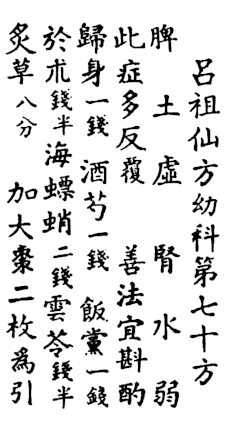 呂祖仙方幼科第七十方
脾土虛腎水弱
此症多反覆 善法宜斟酌
歸身一錢 酒芍一錢 飯黨一錢
於朮錢半 海螵蛸二錢 雲苓錢半
炙草八分 加大棗二枚為引